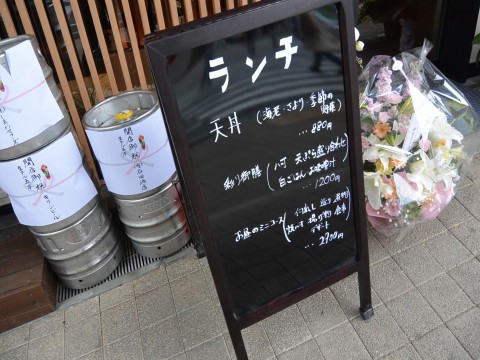 ランチ
天丼
(海老・さより・季節の
野菜)
... 880円
彩り御膳
八寸 天ぷら盛り合わせ
白ごはん お味噌汁
... 1200円
お昼のミニコース
焼八寸 揚げ物 食事
デザート
... 2900円
開店御祝
開店御祝
キリンビール